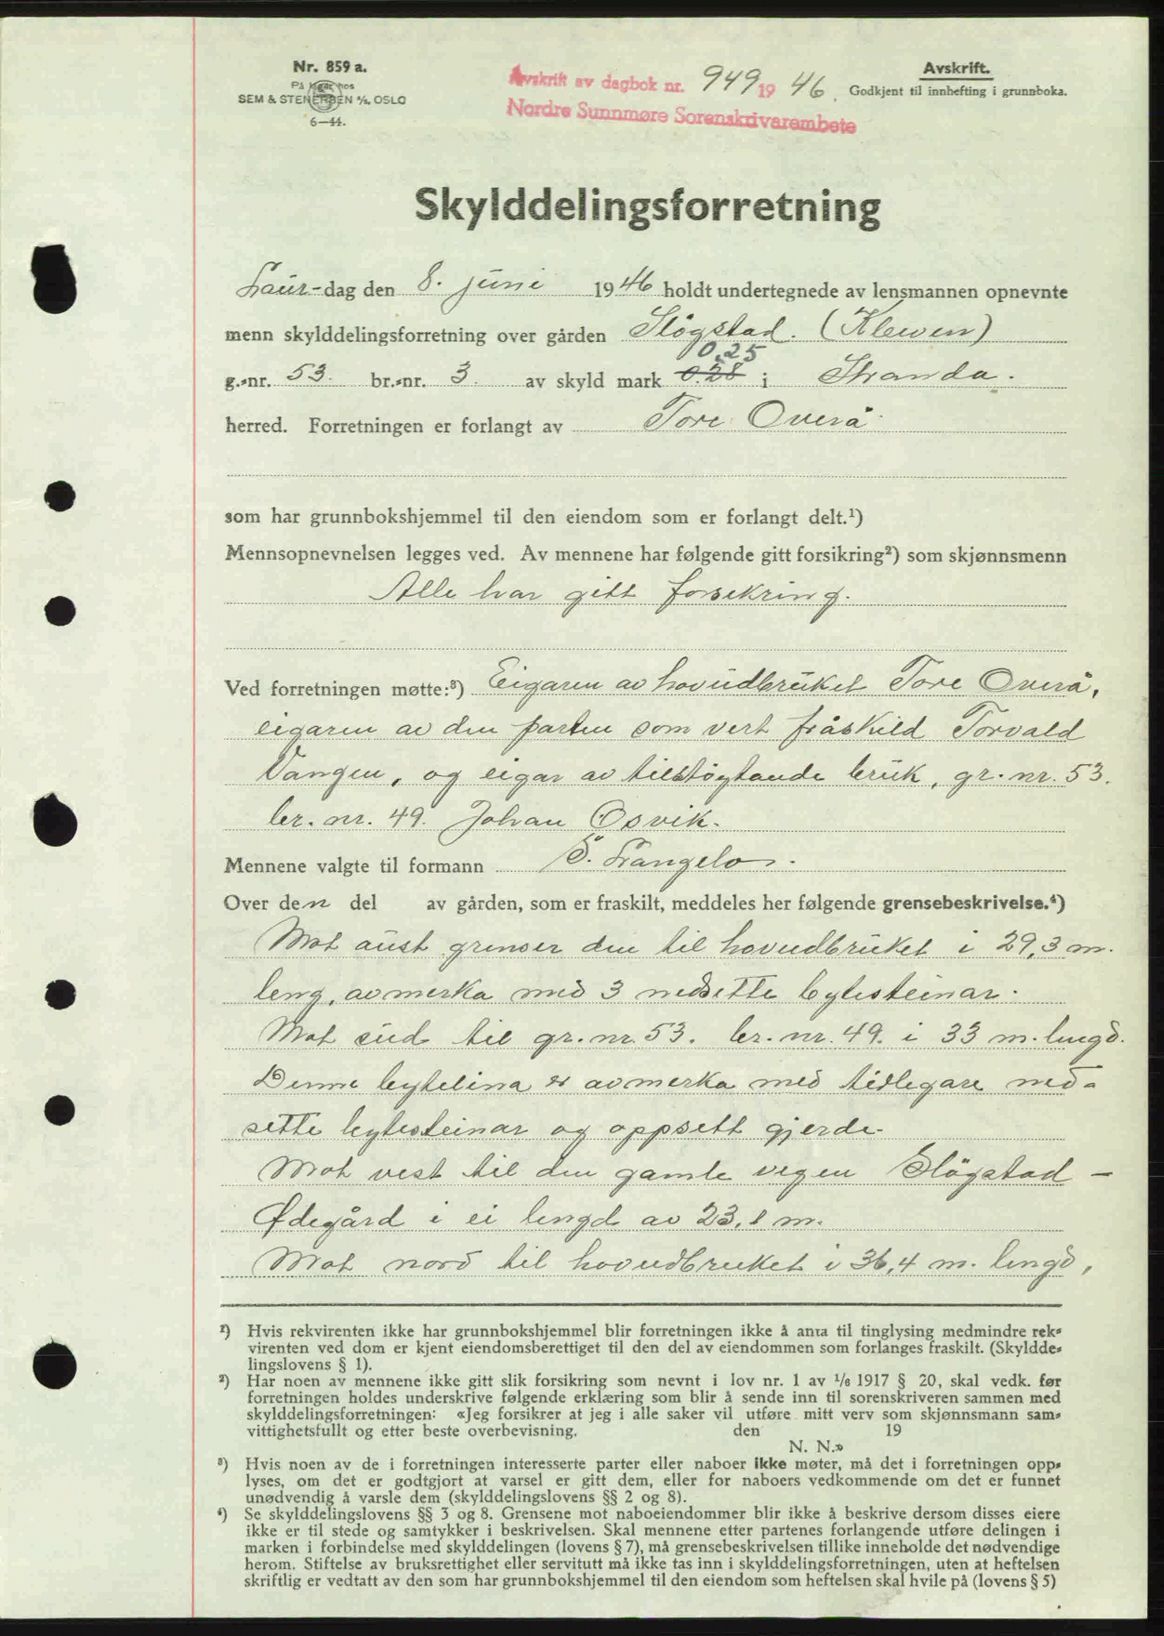 Nr. 859 a.
På lager hos
SEM & STENERSEN A/S, OSLO
6—44.
Avskrift av dagbok nr. 949 19 46.
Nordre Sunnmøre Sorenskrivarembete
Avskrift.
Godkjent til innhefting i grunnboka.
Skylddelingsforretning
Laur-dag den 8. juni 1946 holdt undertegnede av lensmannen opnevnte
menn skylddelingsforretning over gården Slögstad. (Klewen)
0,25
g.-nr. 53. br.-nr. 3. av skyld mark 0.28 i Stranda.
herred. Forretningen er forlangt av Tore Overå
som har grunnbokshjemmel til den eiendom som er forlangt delt.¹)
Mennsopnevnelsen legges ved. Av mennene har følgende gitt forsikring²) som skjønnsmenn
Alle har gitt forsikring.
Ved forretningen møtte:³) Eigaren av hovudbruket Tore Overå,
eigaren av den parten som vert fråskild Torvald
Vangen, og eigar av tilstøytande bruk, gr. nr. 53.
br. nr. 49. Johan Osvik.
Mennene valgte til formann S. Langelo.
Over den del av gården, som er fraskilt, meddeles her følgende grensebeskrivelse.⁴)
Mot aust grenser den til hovudbruket i 29,3 m.
leng, avmerka med 3 nedsette bytesteinar.
Mot sud til gr. nr. 53. br. nr. 49. i 33 m. lengd.
Denne bytelina er avmerka med tidlegare ned-
sette bytesteinar og oppsett gjerde.
Mot vest til den gamle vegen Slögstad –
Ødegård i ei lengd av 23,1 m.
Mot nord til hovudbruket i 36,4 m. lengd,
¹) Hvis rekvirenten ikke har grunnbokshjemmel blir forretningen ikke å anta til tinglysing medmindre rek-
virenten ved dom er kjent eiendomsberettiget til den del av eiendommen som forlanges fraskilt. (Skyldde-
lingslovens § 1).
²) Har noen av mennene ikke gitt slik forsikring som nevnt i lov nr. 1 av 1/6 1917 § 20, skal vedk. før
forretningen holdes underskrive følgende erklæring som blir å sende inn til sorenskriveren sammen med
skylddelingsforretningen: «Jeg forsikrer at jeg i alle saker vil utføre mitt verv som skjønnsmann sam-
vittighetsfullt og etter beste overbevisning. den 19
N. N.»
³) Hvis noen av de i forretningen interesserte parter eller naboer ikke møter, må det i forretningen opp-
lyses, om det er godtgjort at varsel er gitt dem, eller for naboers vedkommende om det er funnet
unødvendig å varsle dem (skylddelingslovens §§ 2 og 8).
⁴) Se skylddelingslovens §§ 3 og 8. Grensene mot naboeiendommer blir ikke å beskrive dersom disses eiere
ikke er til stede og samtykker i beskrivelsen. Skal mennene etter partenes forlangende utføre delingen i
marken i forbindelse med skylddelingen (lovens § 7), må grensebeskrivelsen tillike inneholde det nødvendige
herom. Stiftelse av bruksrettighet eller servitutt må ikke tas inn i skylddelingsforretningen, uten at heftelsen
skriftlig er vedtatt av den som har grunnbokshjemmel til den eiendom som heftelsen skal hvile på (lovens § 5)